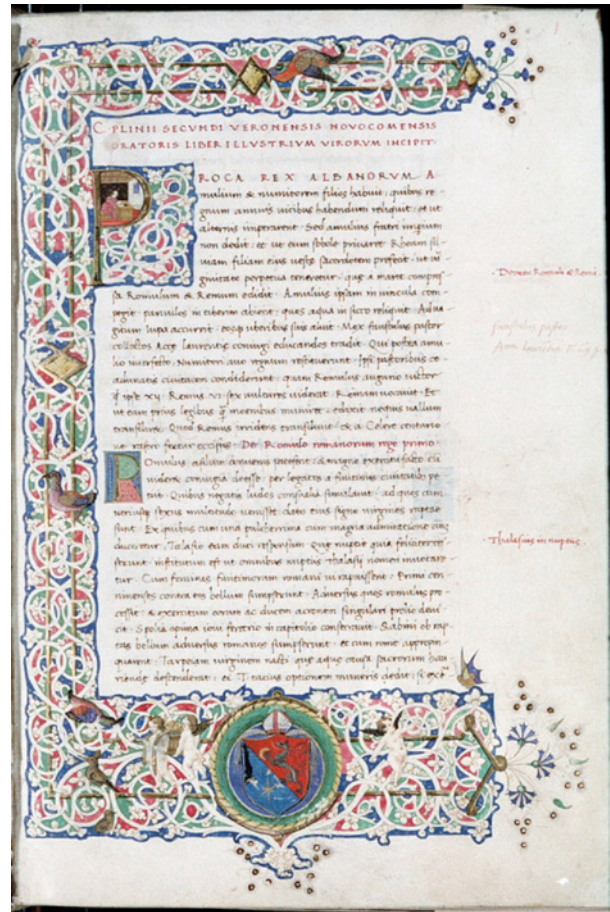 C PLINII SECVNDI VERONENSIS NOVOCOMENSIS
ORATORIS LIBER ILLVSTRIVM VIRORVM INCIPIT
PROCA REX ALBANORVM A
mulium & numitorem filios habuit quibus re
gnum annuis vicibus habendum reliquit et ut
alternis imperarent Sed amulius fratri imperium
non dedit et ut eum sobole privaret Rheam sil
viam filiam eius veste sacerdotem prefecit ut vir
ginitate perpetua teneretur que a marte compres
sa Romulum & Remum edidit Amulius ipsam in vincula com
pegit parvulos in tiberim abiecit quos aqua in sicco reliquit Ad va
gitum lupa accurrit eosque uberibus suis aluit Mox faustulus pastor
collectos Acce laurentie coniugi educandos tradit Qui postea amu
lio interfecto Numitori avo regnum restituerunt Ipsi pastoribus
adunatis civitatem condiderunt quam Romulus augurio victor
ipse XII Remus VI vultures viderat Romam vocavit Et
ut eam prius legibus moenibus muniret edixit nequis vallum
transiliret Quod Remus irridens transilivit & a Celere centurio
ne rastro fertur occisus De Romulo romanorum rege primo
ROmulus asilum patefecit & magno exercitu facto
videret coniugia deesse per legatos a finitimis civitatibus pe
tiit Quibus negatis ludos consualia simulavit ad quos cum
utriusque sexus multitudo venisset dato suis signo virgines rapte
sunt Ex quibus cum una pulcherrima cum magna admiratione
duceretur Talasio eam duci responsum Que nuptie quia feliciter
cesserant institutum est ut omnibus nuptiis Thalasii nomen
tur Cum feminas finitimorum romani vi rapuissent Primi ceni
nenses contra eos bellum sumpserunt Adversus quos romulus pro
cessit & exercitum eorum ac ducem acronem singulari prelio devi
cit Spolia opima iovi feretrio in capitolio consecravit Sabini ob rap
tas bellum adversus romanos sumpserunt et cum rome appropin
quarent Tarpeiam virginem nacti que aque causa sacrorum hau
riende descenderat ei T tacius optionem muneris dedit si exer
Thalasius in nuptiis